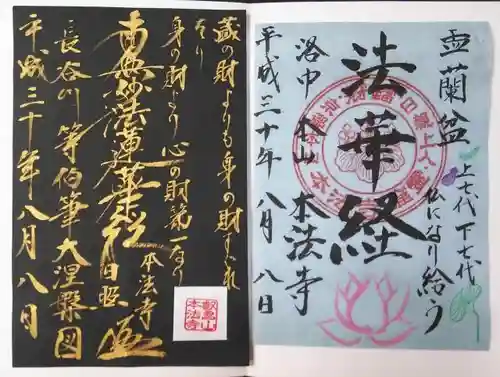 蔵の財よりも身の財すぐれ
たり
身の財より心の財第一なり
南無妙法蓮華経
日親
本法寺
長谷川等伯筆大涅槃図
平成三十年八月八日
叡昌山
本法寺
盂蘭盆
上七代下七代
仏になり給う
法華経
洛中本山本法寺
平成三十年八月八日